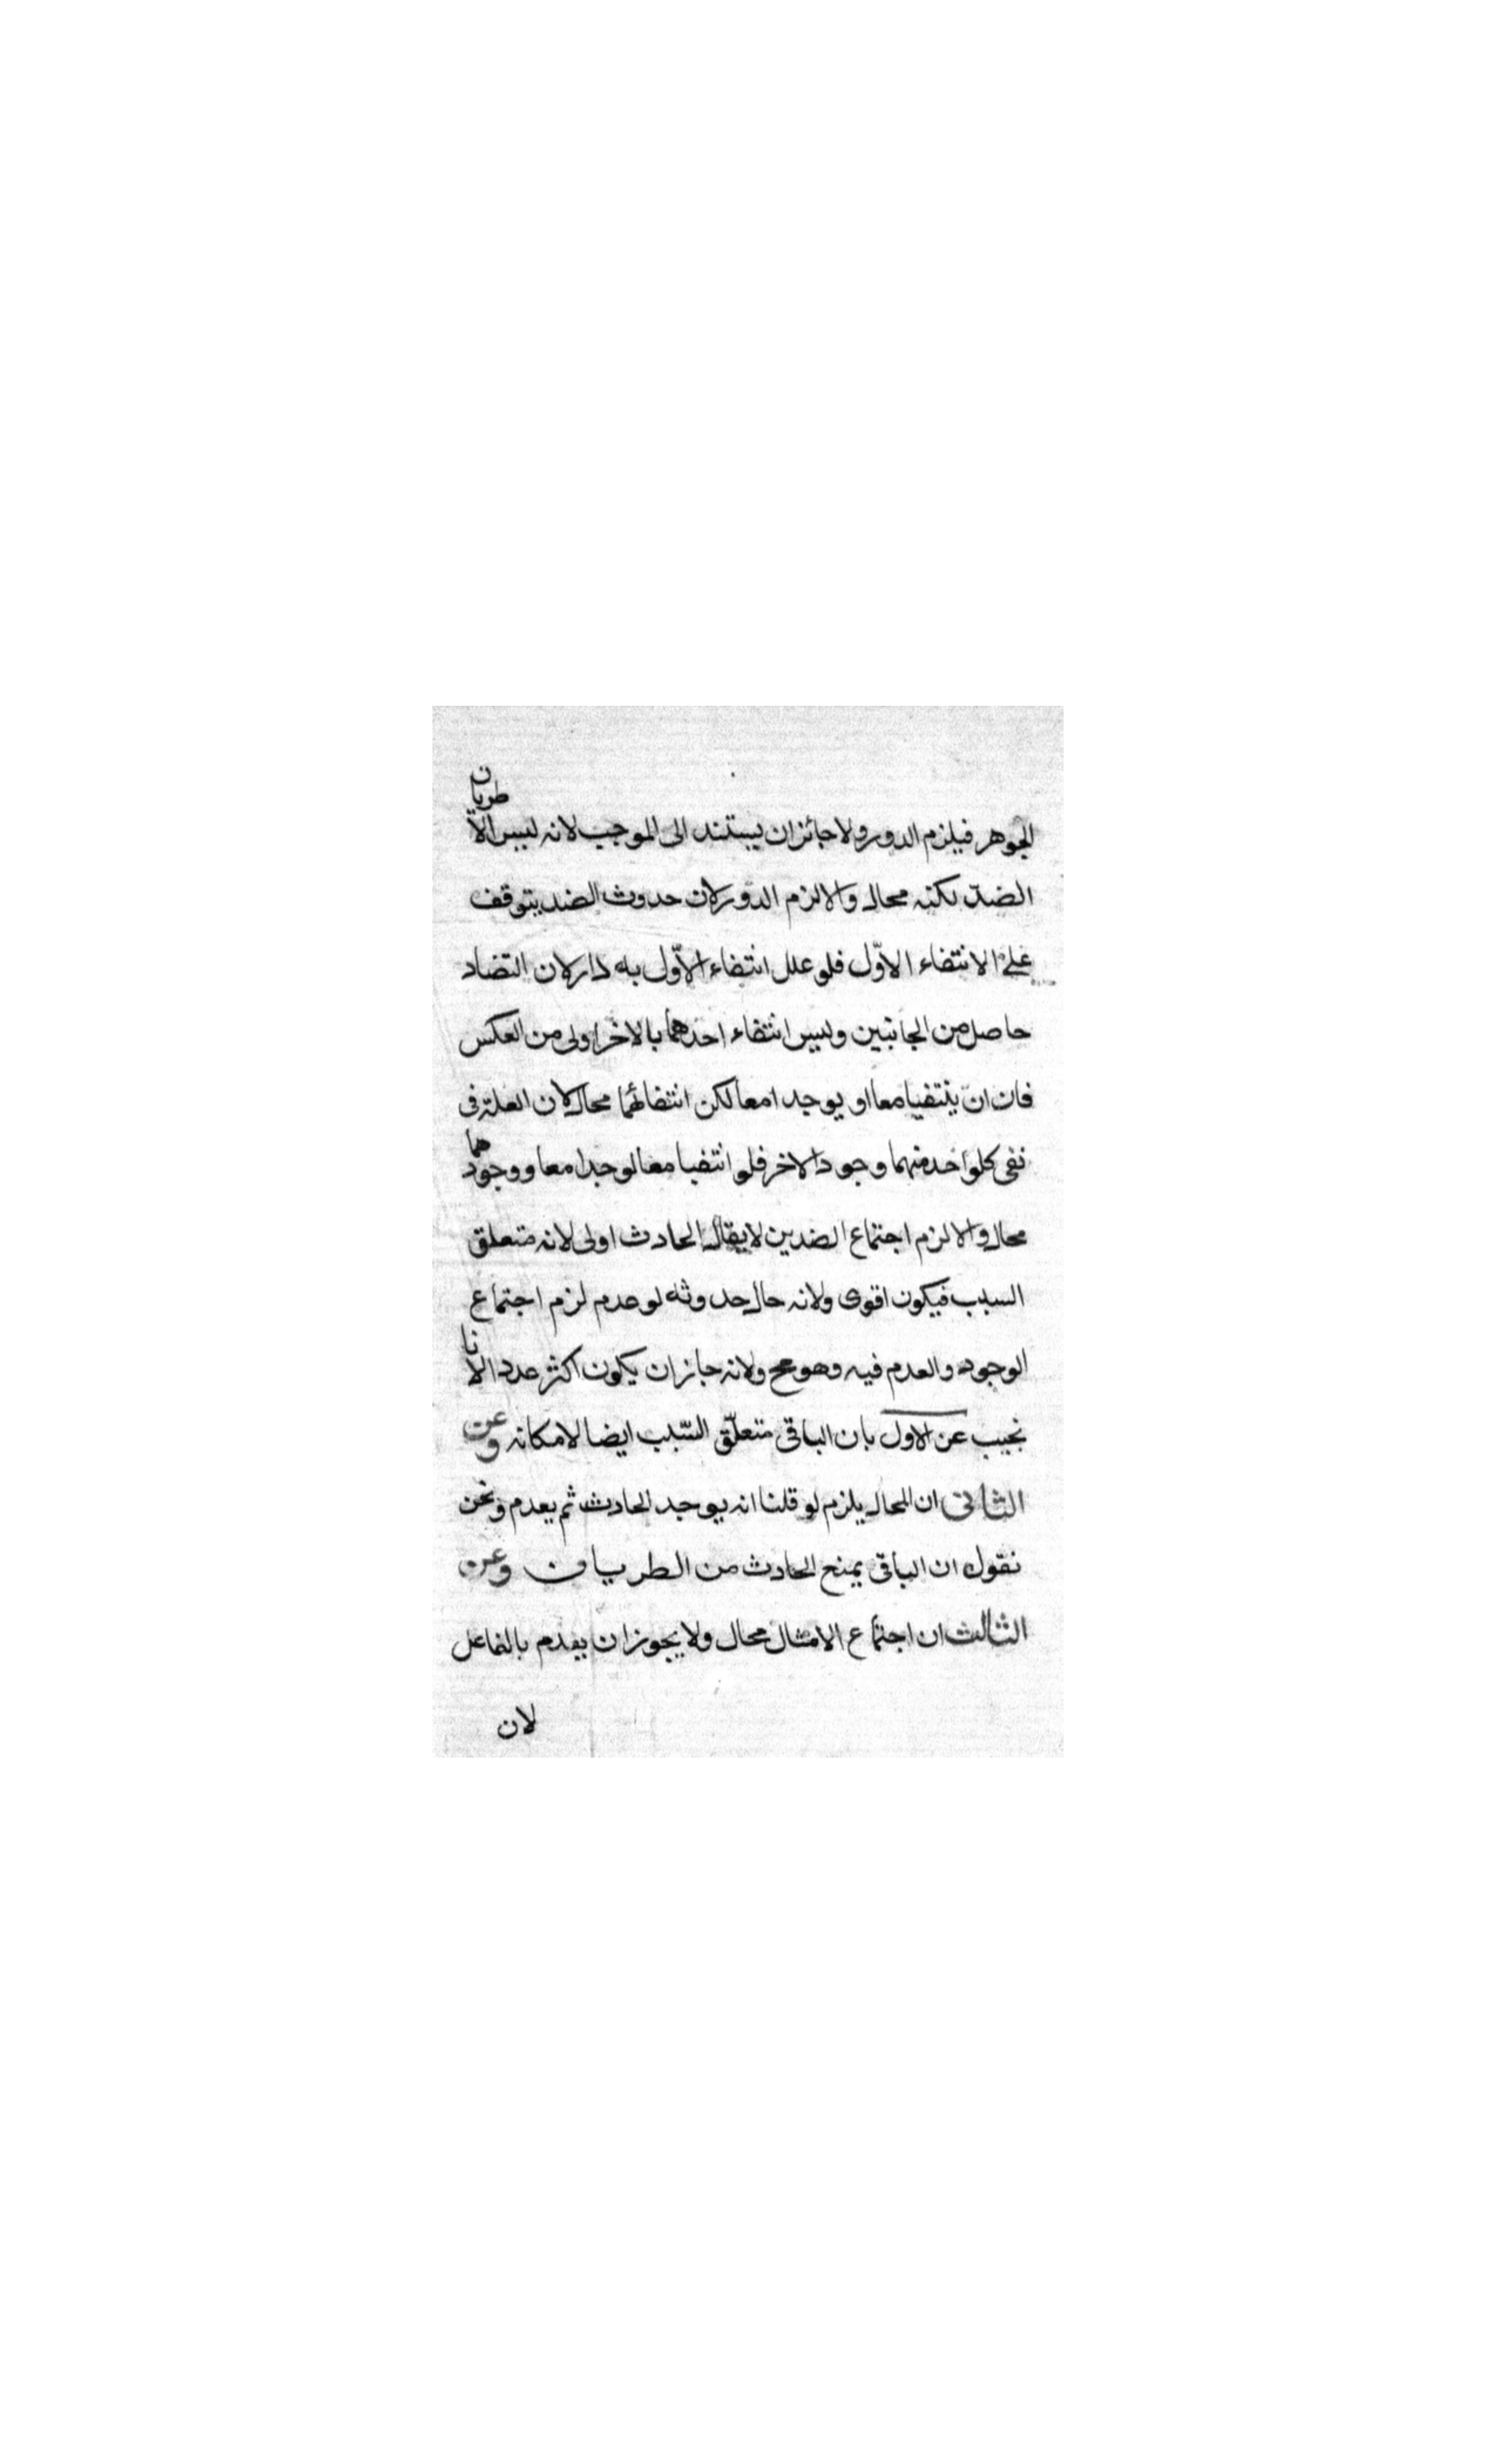 الجوهر فيلزم الدور ولا جائز ان يستند الى الموجب لانه ليس الا طريان
الضد لكنه محال والا لزم الدور لان حدوث الضد يتوقف
على الانتفاء الاوّل فلو علل انتفاء الاوّل به دار لان التضاد
حاصل من الجانبين وليس انتفاء احدهما بالاخر اولى من العكس
فان ان ينتفيا معا او يوجدا معا لكن انتفائهما محال لان العلة فى
نفى كلواحد منهما وجود الاخر فلو انتفيا معا لوجدا معا ووجودهما
محال والا لزم اجتماع الضدين لا يقال الحادث اولى لانه متعلق
السبب فيكون اقوى ولانه حال حدوثه لو عدم لزم اجتماع
الوجود والعدم فيه وهو مح ولانه جاز ان يكون اكثر عددا لانا
نجيب عن الاول بان الباقى متعلّق السّبب ايضا لامكانه وعن
الثانى ان المحال يلزم لو قلنا انه يوجد الحادث ثم يعدم ونحن
نقول ان الباقى يمنع الحادث من الطريان وعن
الثالث ان اجتماع الامثال محال ولا يجوز ان يعدم بالفاعل
لان